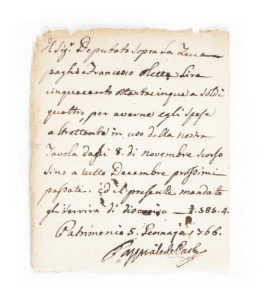 Il Sig.r Deputato sopra la Zecca
paghi a Francesco Lire
cinquecento ottantacinque e soldi
quattro per averne egli spese
altrettante in uso della nostra
Tavola dagli 8. di novembre scorso
sino a tutto Decembre prossimi
passati. ed il presente mandato
gli servirà di £ 585.4.
Patrimonio 5. Gennajo 1766.
Pasquale de Paoli